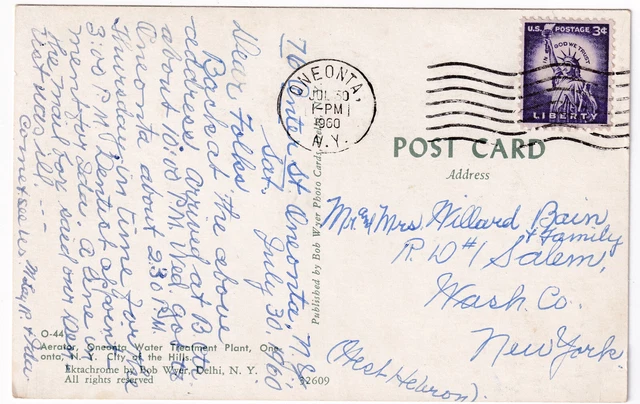 76 Center St. Oneonta, N.Y.
Sat. July 30, 1960
Dear Folks
Back at the above
address! Arrived at
about 10:00 P.M. Wed. Got to
Oneonta about 2:30 P.M.
Thursday in time for the
3:00 P.M. Dentist appoint
me
the mail for said our
Come & see us
O-44
Aerator, Oneonta Water Treatment Plant, One-
onta, N. Y. City of the Hills.
Ektachrome by Bob Wyer, Delhi, N. Y.
All rights reserved
52609
Published by Bob Wyer Photo Cards
ONEONTA,
JUL 30
1-PM
1960
N.Y.
U.S. POSTAGE 3¢
IN GOD WE TRUST
LIBERTY
POST CARD
Address
Mr. & Mrs. Willard Bain
& Family
R.D #1 Salem,
Wash. Co.
New York.
(West Hebron).